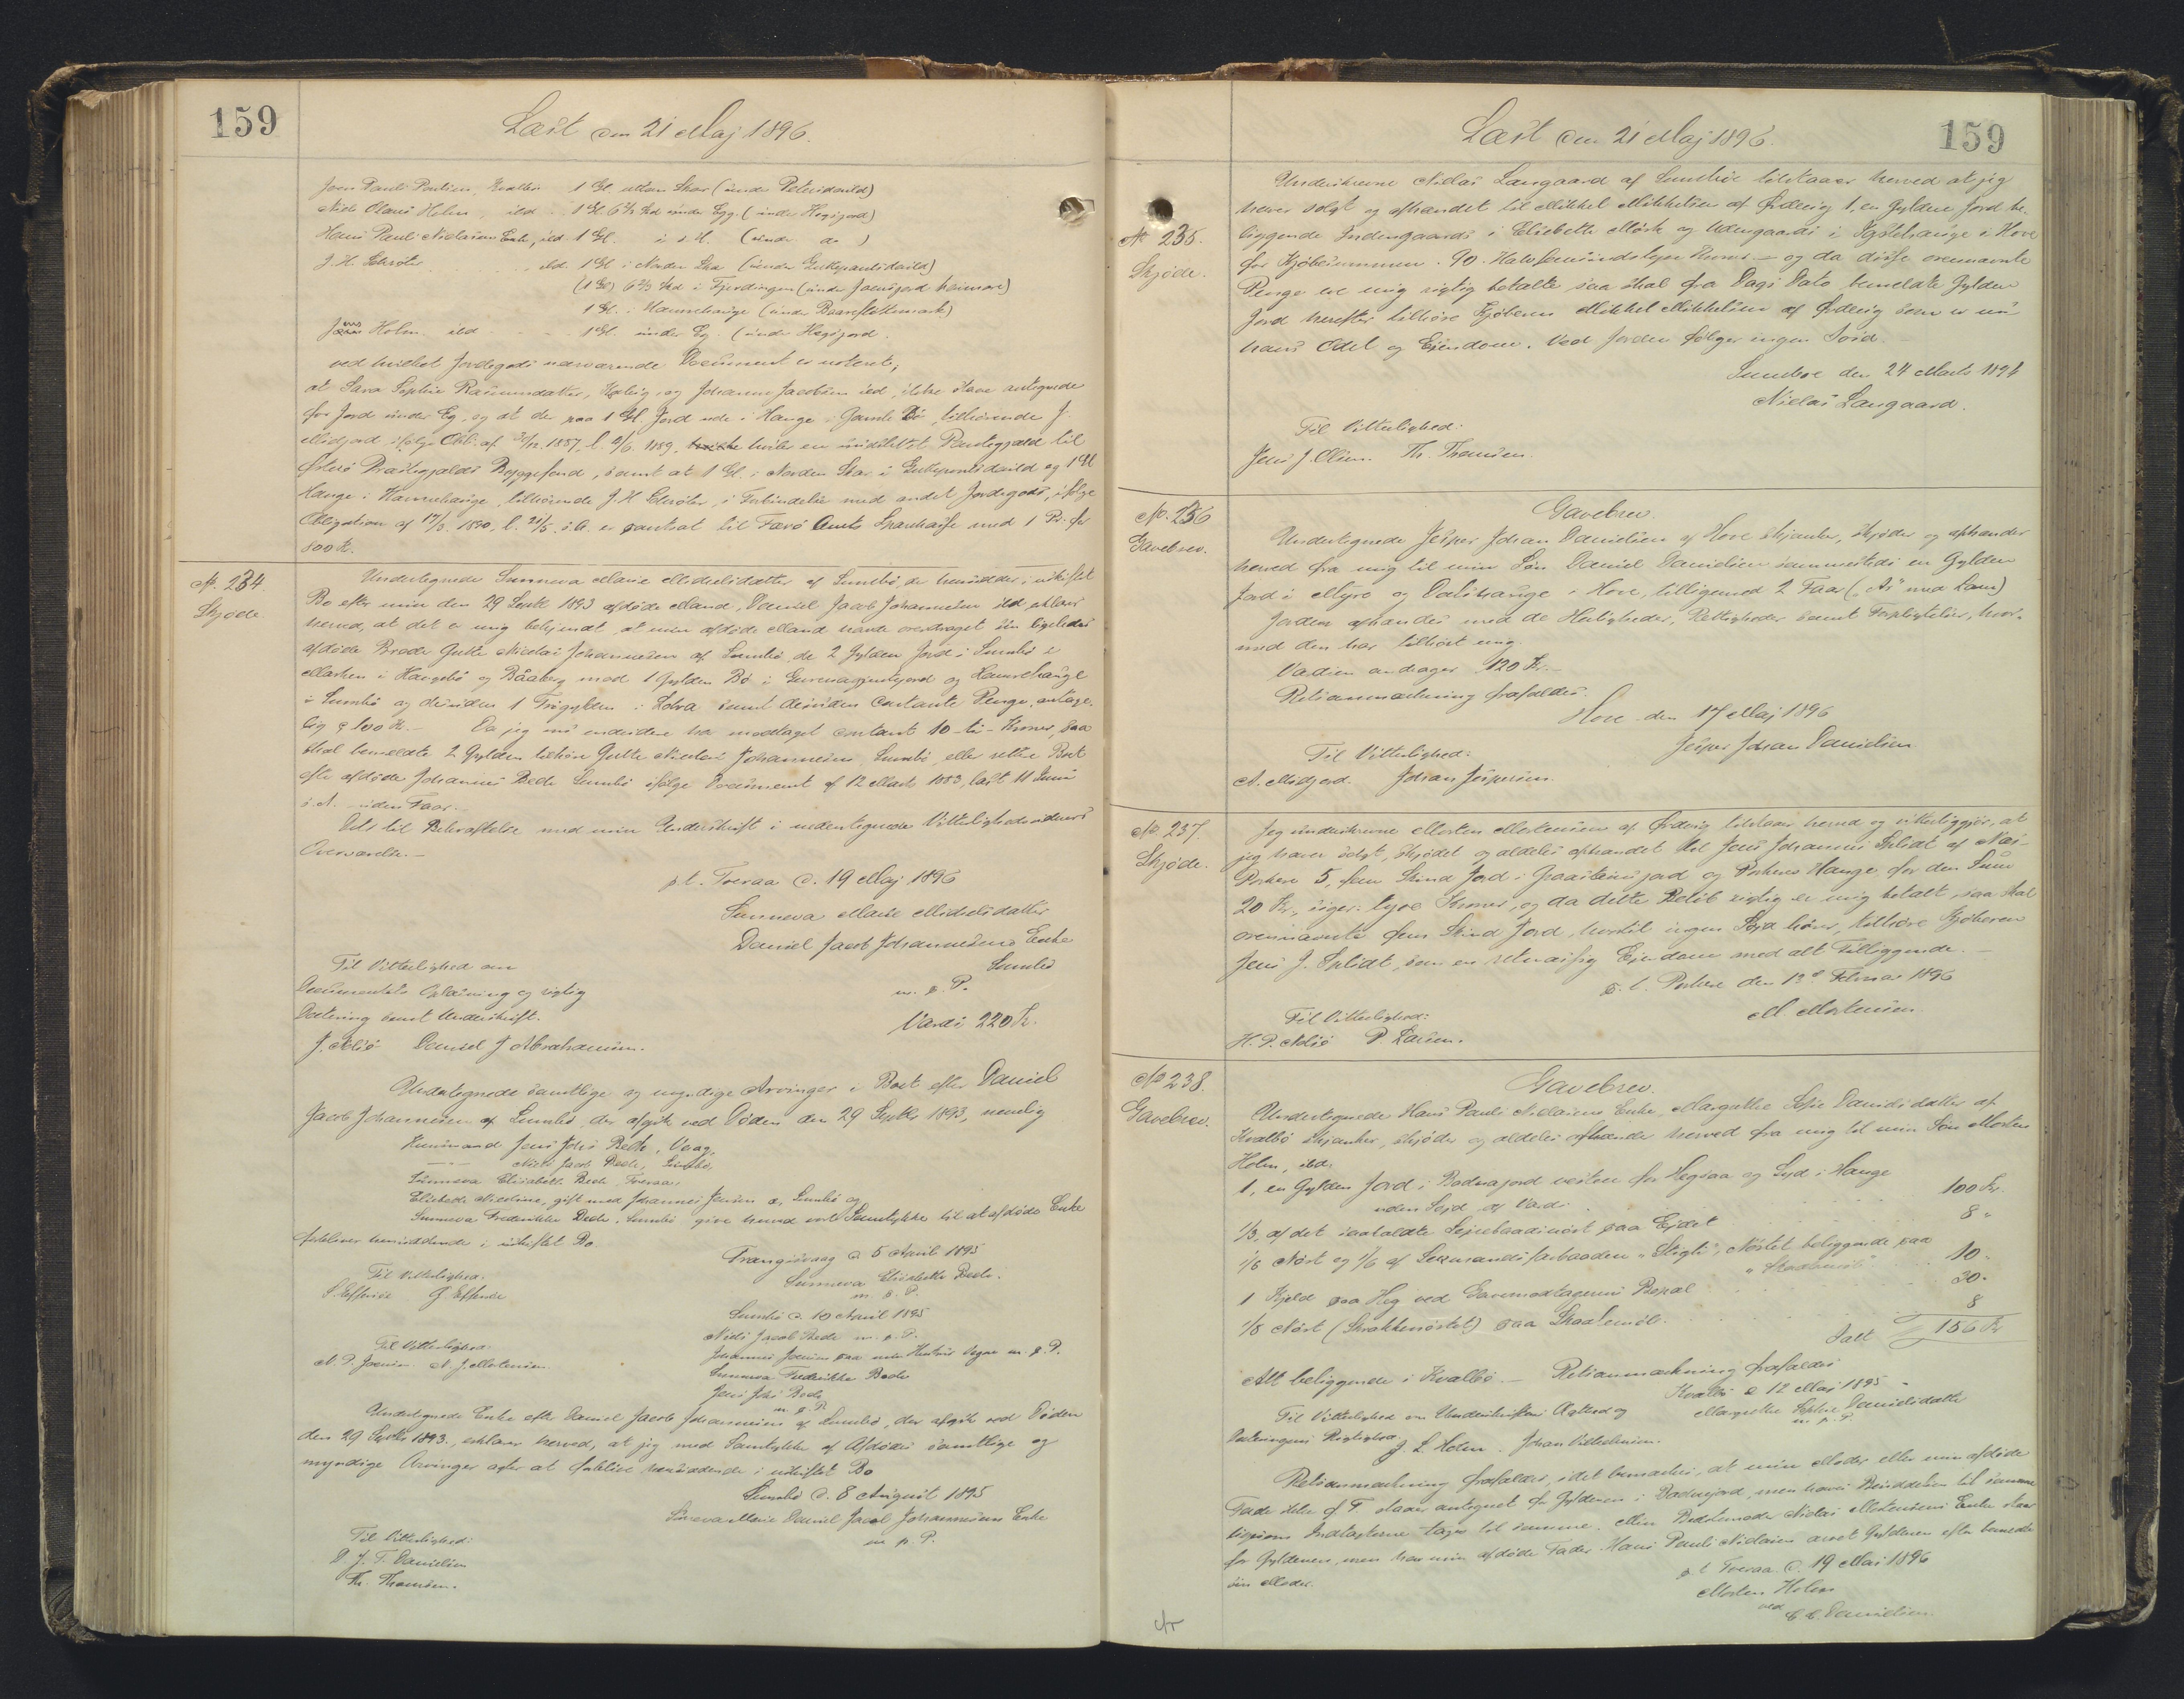 159
Læst den 21 Maj 1896.
Joen Pauli Poulsen, Kvalbø 1 Gl. uttan Skar (under Petersdavild)
Niels Olaus Holm, ibd. 1 Gl. 6⅔ Skd under Egg. (under Hegsjord)
Hans Pauli Nielsens Enke, ibd. 1 Gl. i s. H. (under do )
J. H. Schrøter ibd. 1 Gl. i Norden Skar (under
(1 Gl) 6⅔ Skd i Fjerdingen (under Joensjord heimare)
1 Gl. i Hamrehauge (under
Jens Holm ibd 1 Gl. under Eg. (under Hegsjord.
ved hvilket Jordegods nærværende Document er noteret;
at Sara Sophie Rasmusdatter, Hvalvig, og Johannes Jacobsen ibd, ikke staar antegnede
for Jord under Eg, og at der paa 1 Gl. Jord ude i Hauge i Gamle Bø, tilhørende J.
Midjord ifølge Obl. af 1887, l. 1889, hviler en uudslettet Pantegjæld til
Østerø Præstegjælds Byggefond, samt at 1 Gl. i Norden Skar i og 1 Gl
Hauge i Hamrehauge, tilhørende J. H. Schrøter, i Forbindelse med andet Jordegods, ifølge
Obligation af 17/3 1890, l. 21/5 s. A. er pantsat til Færø Amts Sparekasse med 1 Pr. for
800 Kr.
No. 234
Skjøde
Undertegnede Sunneva Marie Michelsdatter af Sumbø der hensidder i uskiftet
Bo efter min den 29 Septb 1893 afdøde Mand, Daniel Jacob Johannesen ibd erklærer
herved, at det er mig bekjendt, at min afdøde Mand havde overdraget sin ligeledes
afdøde Broder Gutte Nicolai Johannesen af Sumbø, de 2 Gylden Jord i Sumbø i
Marken i Haugebø og Båaberg mod 1 Gylden Bø i og Hamrehauge
i Sumbø og desuden 1 Frigylden i Lobra samt desuden Contante Penge, antage-
lig ç 100 Kr. — Da jeg nu endvidere har modtaget contant 10 - ti - Kroner, saa
skal bemeldte 2 Gylden tilhøre Gutte Nicolai Johannesens, Sumbø, eller rettere Boet
efter afdøde Johannes Bech Sumbø ifølge Document af 12 Marts 1883, læst 11 Juni
s. A. — uden Faar. —
Dets til Bekræftelse med min Underskrift i nedentegnede Vitterlighedsvidners
Overværelse. —
p. t. Tveraa d. 19 Maj 1896
Sunneva Marie Michelsdatter
Daniel Jacob Johannesens Enke
Sumbø
m. p. P.
Til Vitterlighed om
Documentets Oplæsning og rigtig
Datering samt Underskrift.
Værdi 220 Kr.
J. Nolsø Daniel J. Abrahamsen.
Undertegnede samtlige og myndige Arvinger i Boet efter Daniel
Jacob Johannesen af Sumbø, der afgik ved Døden den 29 Septbr 1893, nemlig
Husmand Jens Johs Bech, Vaag,
—"— Niels Jacob Bech, Sumbø,
Sunneva Elisabeth Bech, Tveraa,
Elsebeth Nicoline, gift med Johannes Jensen, Sumbø og
Sunneva Frederikke Bech, Sumbø give herved vort Samtykke til at afdødes Enke
forbliver hensiddende i uskiftet Bo
Trangisvaag d. 5 April 1895
Til Vitterlighed:
Sunneva Elisabeth Bech.
m. p. P.
Sumbø d. 10 April 1895
Niels Jacob Bech m. p. P.
Til Vitterlighed:
Johannes Jensen paa min Hustrus Vegne m. p. P.
N. P. Joensen. N. J. Mortensen.
Sunneva Frederikke Bech
Jens Johs Bech
m. p. P.
Undertegnede Enke efter Daniel Jacob Johannesen af Sumbø, der afgik ved Døden
den 29 Septbr 1893, erklærer herved, at jeg med Samtykke af Afdødes samtlige og
myndige Arvinger agter at forblive hensiddende i uskiftet Bo
Sumbø d. 8 August 1895
Sunneva Marie Daniel Jacob Johannesens Enke
m. p. P.
Til Vitterlighed:
D. J. T. Danielsen
Th. Thomsen.
Læst den 21 Maj 1896.
159
No 235.
Skjøde.
Underskrevne Niclas Langgaard af Sumbøe tilstaaer herved at jeg
haver solgt og afhændet til Mikkel Mikkelsen af Ørdevig 1, en Gylden Jord be-
liggende Indengaards i Elisabeths Mørk og Udengaards i i Hove
for Kjøbesummen 90. Halvfemsindstyve Kroner — og da disse ovennævnte
Penge er mig rigtig betalte saa skal fra Dags Dato bemeldte Gylden
Jord herefter tilhøre Kjøberen Mikkel Mikkelsen af Ørdevig som er nu
hans Odel og Eiendom. Ved Jorden følger ingen Søid.
Sumbøe den 24 Marts 1894
Niclas Langgaard.
Til Vitterlighed:
Jens J. Olsen. Th. Thomsen.
No. 236
Gavebrev.
Gavebrev.
Undertegnede Jesper Johan Danielsen af Hove skjænker, skjøder og afhænder
herved fra mig til min Søn Daniel Danielsen sammesteds en Gylden
Jord i Myre og Dalshauge i Hove, tilligemed 2 Faar ("Ar" med Lam)
Jorden afhændes med de Herligheder, Rettigheder samt Forpligtelser, hvor-
med den har tilhørt mig.
Værdien andrager 120 Kr. —
Retsanmærkning frafaldes.
Hove den 17 Maj 1896
Til Vitterlighed:
Jesper Johan Danielsen
A. Midjord. Johan Jespersen.
No 237.
Skjøde.
Jeg underskrevne Morten Mortensen af Ørdevig tilstaar herved og vitterliggjør, at
jeg haver solgt, skjødet og aldeles afhændet til Jens Johannes Splidt af Næs-
Porkere 5, fem Skind Jord i Graasteinsjord og Porkeres Hauge for den Sum
20 Kr., siger tyve Kroner, og da dette Beløb rigtig er mig betalt, saa skal
ovennævnte fem Skind Jord, hvortil ingen Søid hører, tilhøre Kjøberen
Jens J. Splidt, som en retmæssig Ejendom med alt Tilliggende. —
p. t. Porkere den 13de Februar 1896
Til Vitterlighed:
M. Mortensen.
H. P. Nolsø P Larsen.
No 238.
Gavebrev.
Gavebrev.
Undertegnede Hans Pauli Nielsens Enke, Margrethe Sofie Danielsdatter af
Kvalbø skjænker, skjøder og aldeles afhænder herved fra mig til min Søn Morten
Holm, ibd:
1, en Gylden Jord i Bodnajord vesten for Hegsaa og Syd i Hauge
uden Søjd af Værdi 100 Kr.
⅓, af det saakaldte paa Ejdet 8 "
1/6 Nøst og 1/6 af Sexmandsfarbaaden "Stigti", Nøstet beliggende paa
10 "
1 Kjeld paa Heg ved Gavemodtagerens Bopæl 30 "
1/8 Nøst (Skrokkenøstet) paa 8
Ialt 156 Kr
Alt beliggende i Kvalbø. — Retsanmærkning frafaldes
Kvalbø d 12 Maj 1895
Til Vitterlighed om Underskriftens Ægthed og
Margrethe Sophie Danielsdatter
m. p. P.
Dateringens Rigtighed
J. L. Holm. Johan Vilhelmsen.
Retsanmærkning frafaldes, idet bemærkes, at min Moder eller min afdøde
Fader ikke staar antegnet for Gyldenen i Bodnajord, men haves Besiddelsen til samme
ligesom Indtægterne tages til samme. Min Bedstemoder Niclas Mortensens Enke staar
for Gyldenen, men har min afdøde Fader Hans Pauli Nielsen arvet Gyldenen efter bemeldte
sin Moder.
p. t. Tveraa d. 19 Maj 1896
Morten Holm
ved
Danielsen.